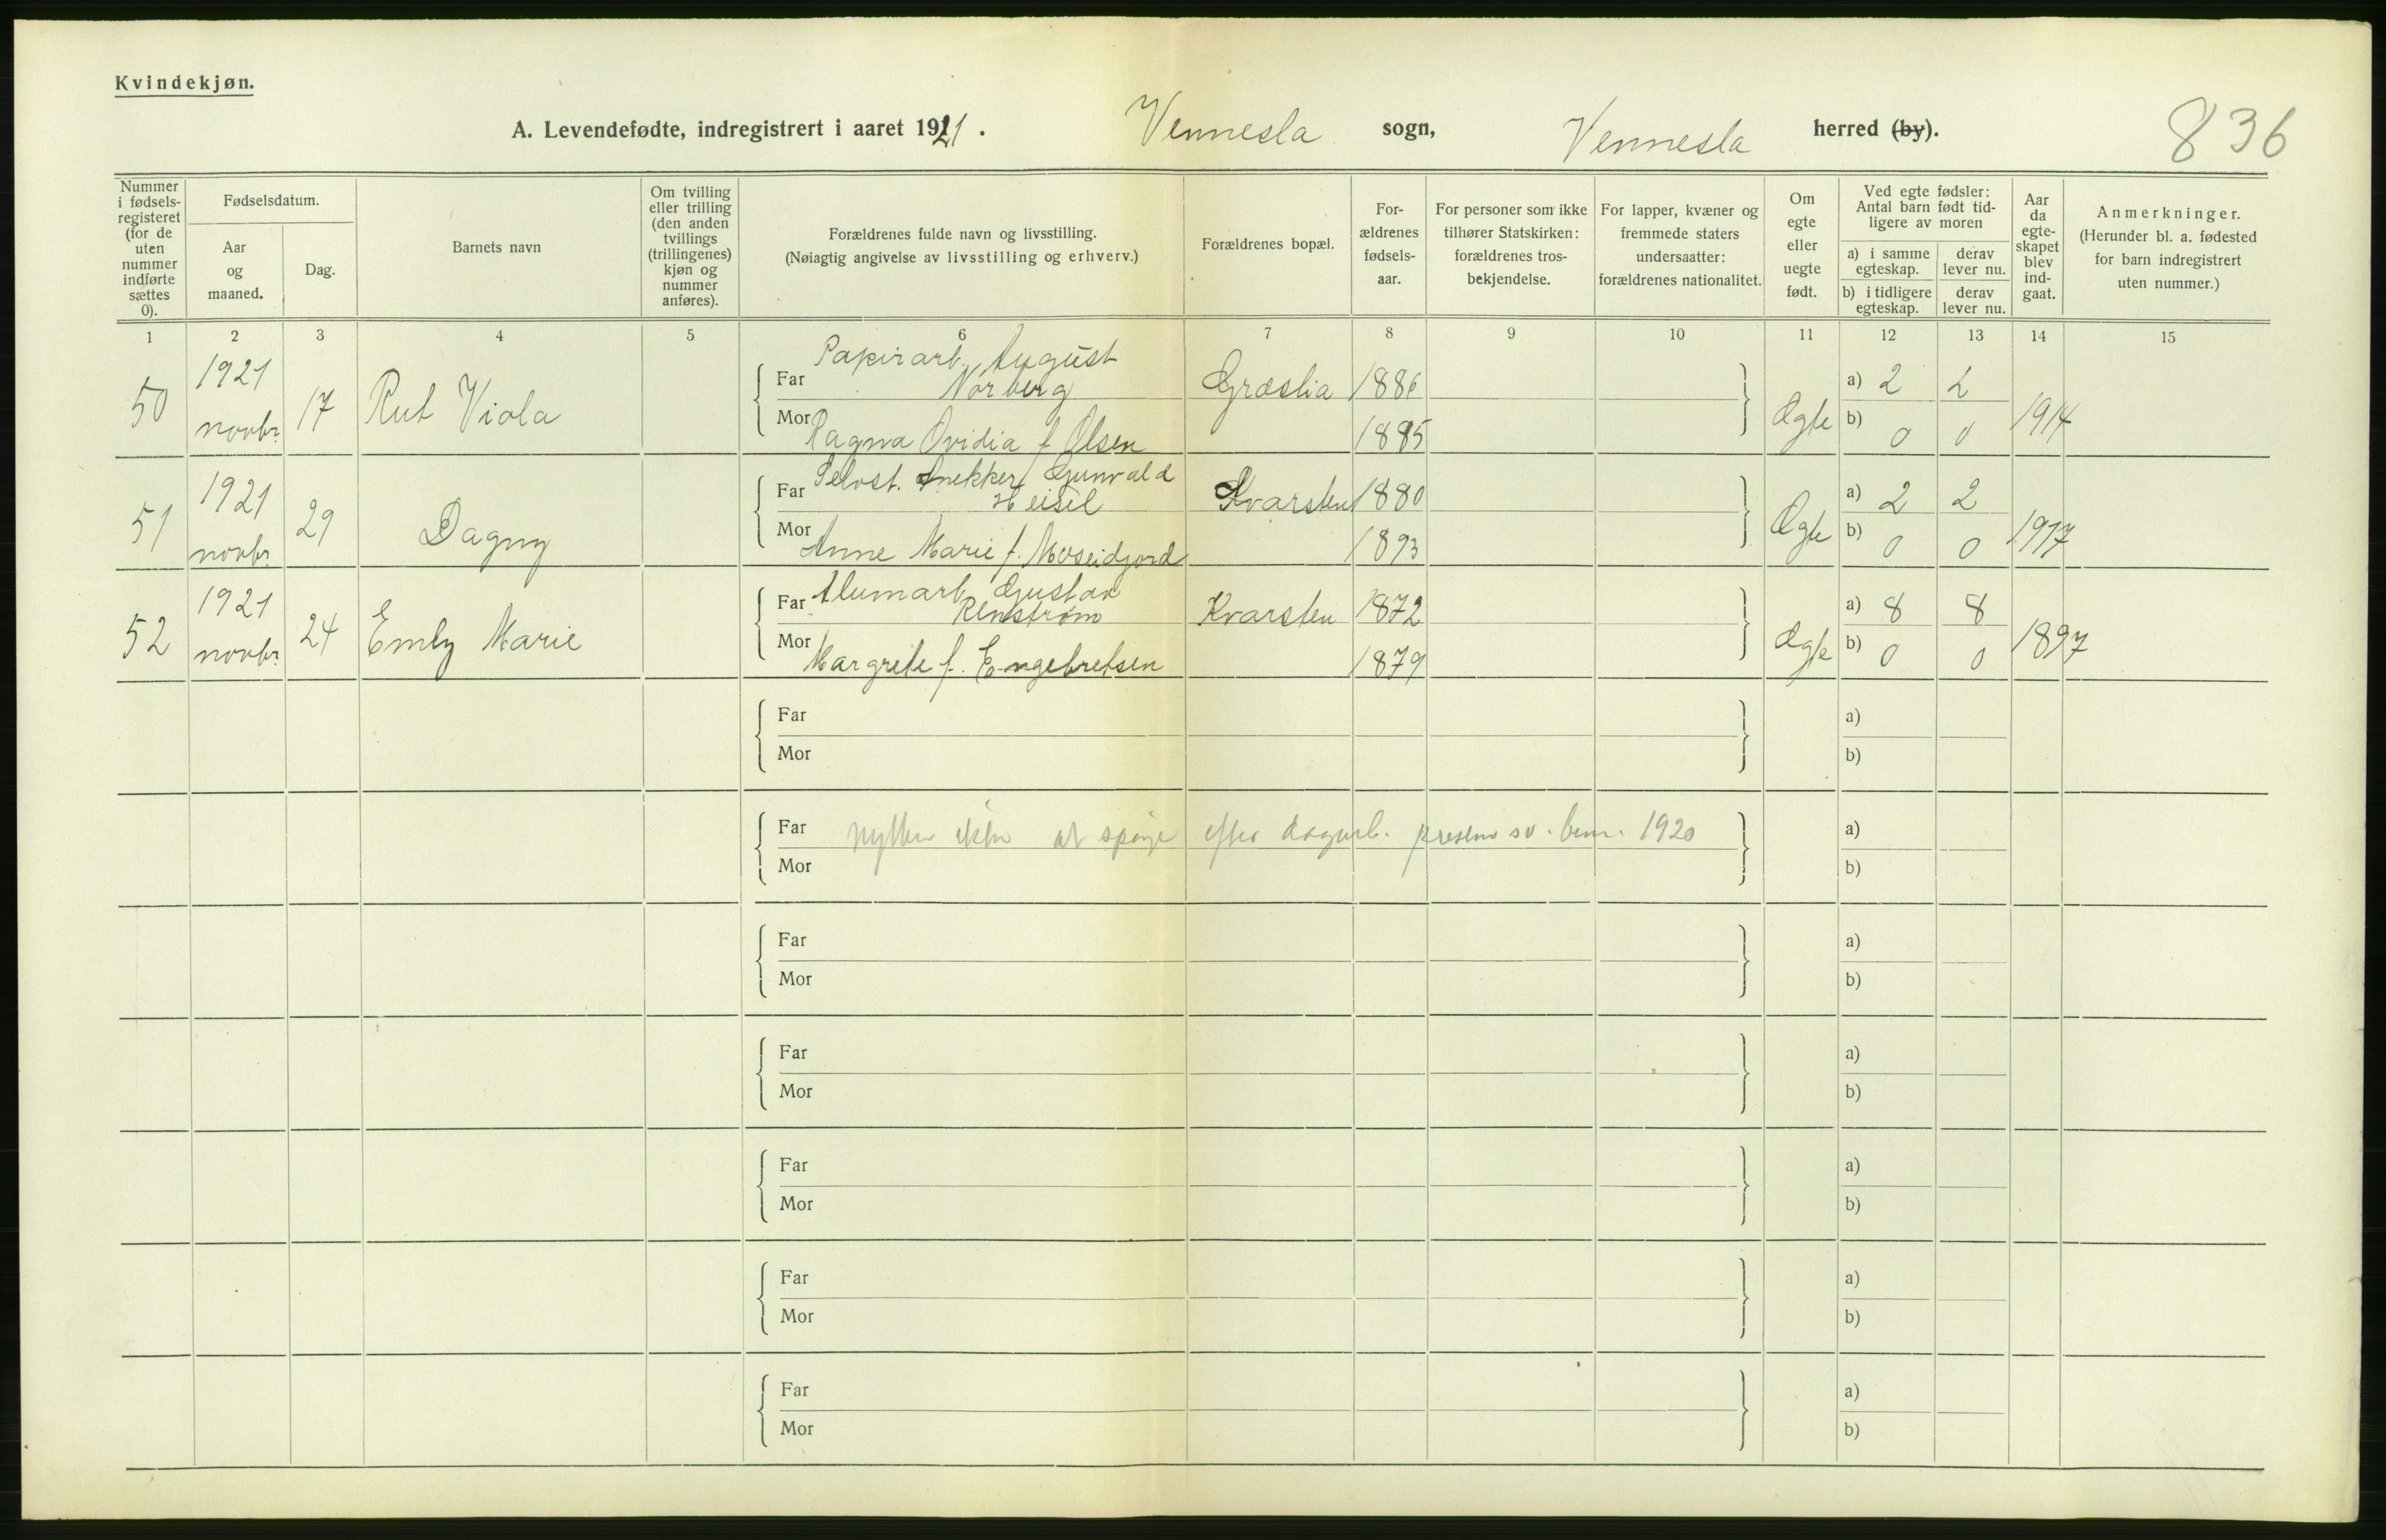 Kvindekjøn.
A. Levendefødte, indregistrert i aaret 1921. Vennesla sogn, Vennesla herred (by). 836
Nummer i fødselsregisteret (for de uten nummer indførte sættes 0).
Fødselsdatum.
Aar og maaned.
Dag.
Barnets navn
Om tvilling eller trilling (den anden tvillings (trillingenes) kjøn og nummer anføres).
Forældrenes fulde navn og livsstilling.
(Nøiagtig angivelse av livsstilling og erhverv.)
Forældrenes bopæl.
Forældrenes fødselsaar.
For personer som ikke tilhører Statskirken: forældrenes trosbekjendelse.
For lapper, kvæner og fremmede staters undersaatter: forældrenes nationalitet.
Om egte eller uegte født.
Ved egte fødsler: Antal barn født tidligere av moren
a) i samme egteskap.
derav lever nu.
b) i tidligere egteskap.
derav lever nu.
Aar da egteskapet blev indgaat.
Anmerkninger.
(Herunder bl. a. fødested for barn indregistrert uten nummer.)
1 2 3 4 5 6 7 8 9 10 11 12 13 14 15
50 1921 novbr. 17 Rut Viola
Far Papirarb. August Norberg Græslia 1886 a) 2 2
Mor Ragna Ovidia f Olsen 1885 Ægte b) 0 0 1914
51 1921 novbr. 29 Dagny
Far Selvst. snekker Gunvald Heisel Kvarsten 1880 a) 2 2
Mor Anne Marie f. Moseidjord 1893 Ægte b) 0 0 1917
52 1921 novbr. 24 Emly Marie
Far Alumarb. Gustav Renstrøm Kvarsten 1872 a) 8 8
Mor Margrete f. Engebretsen 1879 Ægte b) 0 0 1897
Far a)
Mor b)
Far ikke at spørge efter 1920 a)
Mor b)
Far a)
Mor b)
Far a)
Mor b)
Far a)
Mor b)
Far a)
Mor b)
Far a)
Mor b)